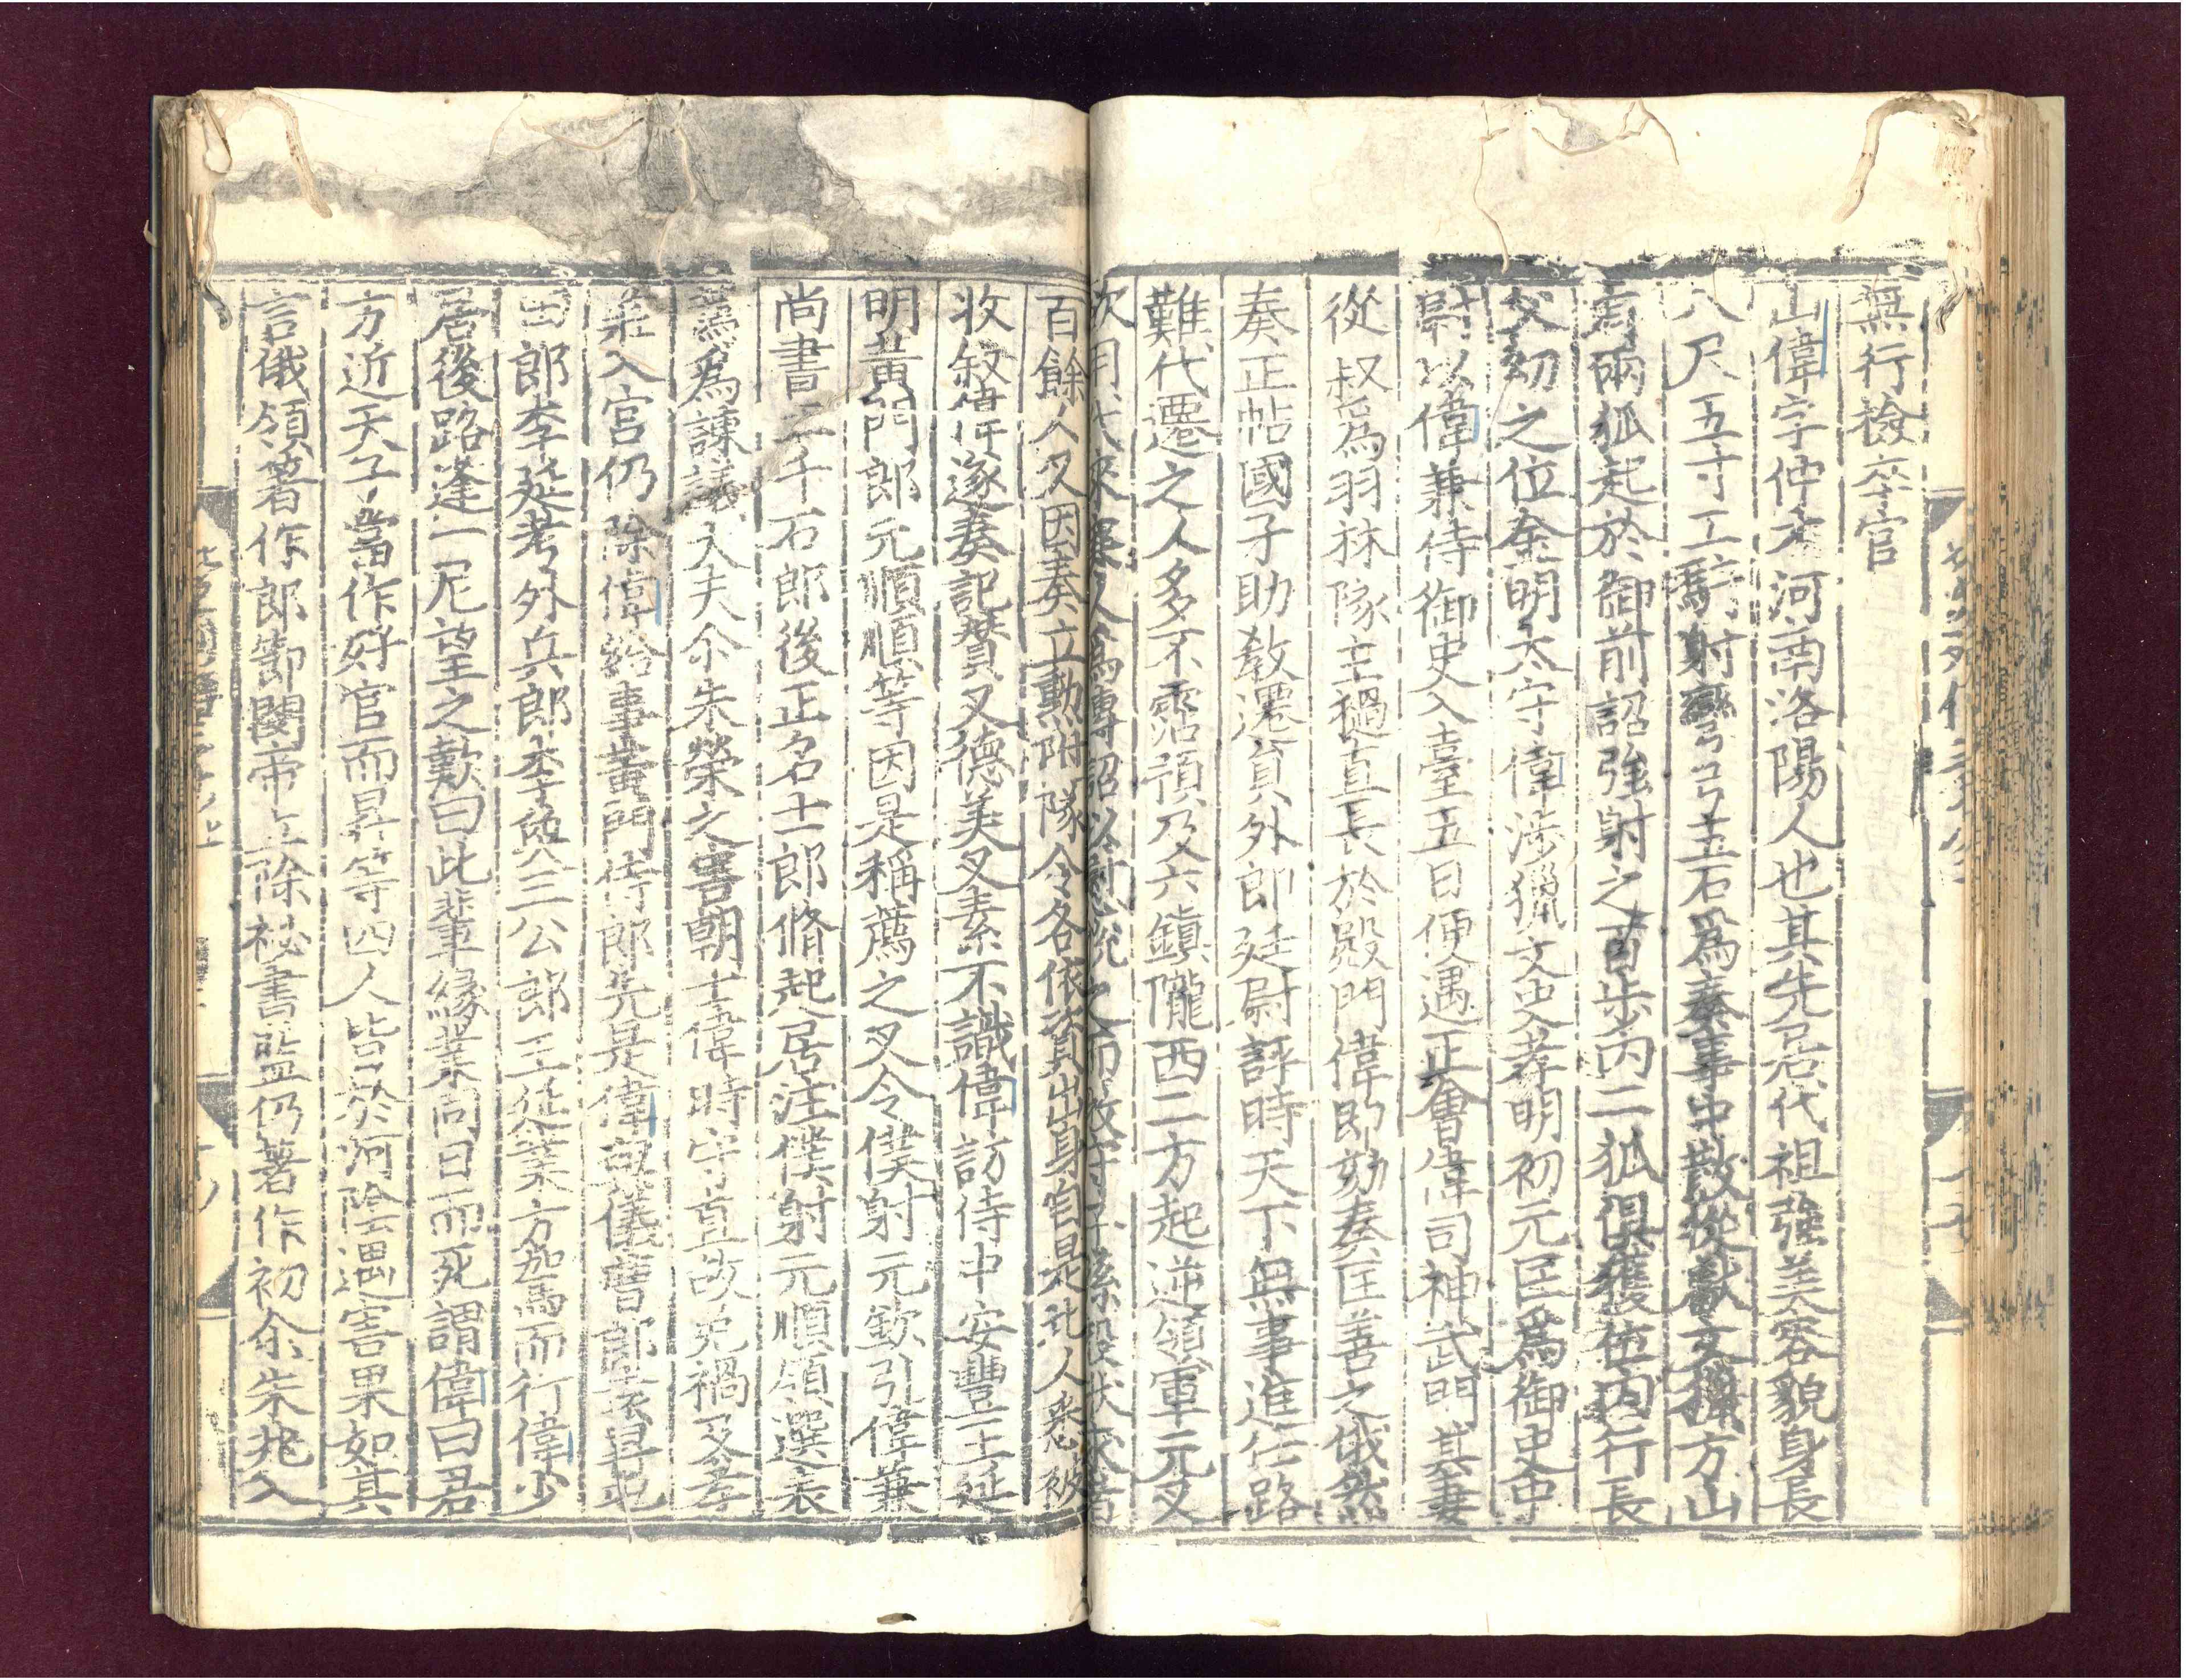 無行檢卒官
山偉字仲才河南洛陽人也其先居代祖強美容貌身長
八尺五寸工騎射彎弓五石爲奏事中散從獻文獵方山
有兩狐起於御前詔強射之百步內二狐俱獲位內行長
父幼之位金明太守偉涉獵文史孝明初元匡爲御史中
尉以偉兼侍御史入臺五日便遇正會偉司神武門其妻
從叔爲羽林隊主撾直長於殿門偉即劾奏匡善之俄然
奏正帖國子助敎遷貟外郎廷尉評時天下無事進仕路
難代遷之人多不霑預及六鎮隴西二方起逆領軍元叉
欲用代來寒人爲傳詔以慰悅之而牧守子孫投狀求者
百餘人叉因奏立勳附隊令各依資出身自是北人悉被
收叙偉遂奏記贊叉德美叉素不識偉訪侍中安豐王延
明黃門郎元順順等因是稱薦之叉令僕射元欽引偉兼
尚書二千石郎後正名士郎脩起居注僕射元順領選表
薦爲諫議大夫尒朱榮之害朝士偉時守直故免禍及孝
莊入宮仍除偉給事黃門侍郎先是偉與儀曹郎袁昇屯
田郎李延考外兵郎李奐三公郎王延業方駕而行偉少
居後路逢一尼望之歎曰此輩緣業同日而死謂偉曰君
方近天子當作好官而昇等四人皆於河陰遇害果如其
言俄領著作郎節閔帝立除祕書監仍著作初尒朱兆入